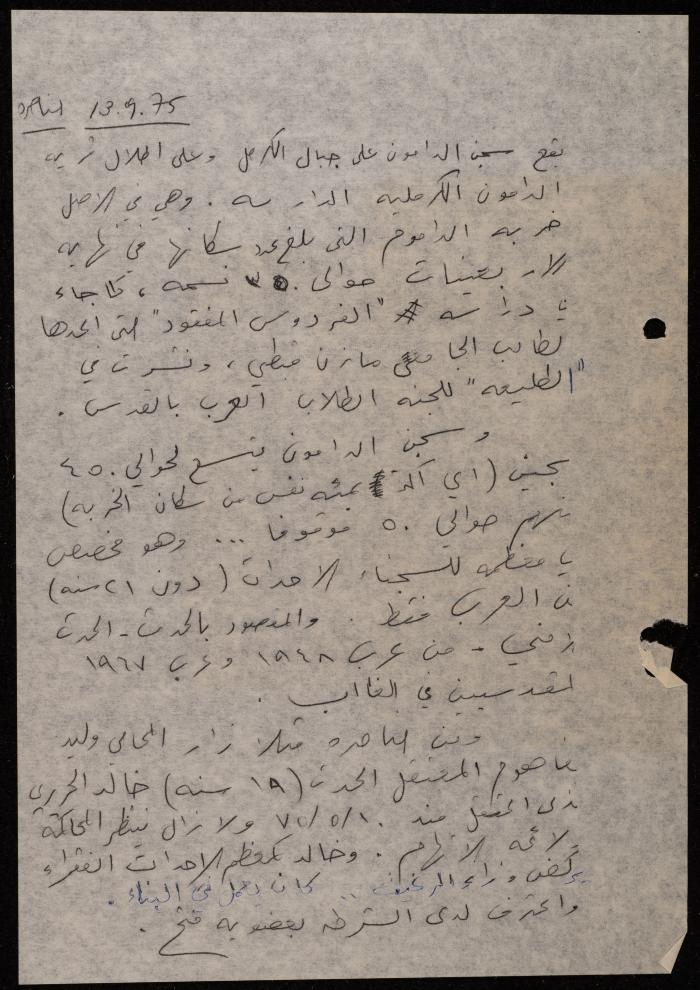 الناصرة 13.9.75
يقع سجن الدامون على جبال الكرمل وعلى اطلال قريه
الدامون الكرمليه الدارسه . وهي في الاصل
خربه الداموم التي بلغ عدد سكانها في نهايه
الاربعينات حوالي ٣٥٠ نسمه ، كما جاء
دراسه "الفردوس المفقود" التي اعدها
لطالب الجامعي مازن قبطي ، ونشرت في
"الطليعه" للجنه الطلاب العرب بالقدس .
وسجن الدامون يتسع لحوالي ٤٥٠
سجين (اي اكثر بمئه نفس من سكان الخربه)
منهم حوالي ٥٠ موقوفا ... وهو مخصص
معظمه للسجناء الاحداث (دون ٢١ سنه)
من العرب فقط . والمقصود بالحدث - الحدث
الامني - من عرب ١٩٤٨ وعرب ١٩٦٧
المقدسيين في الغالب .
ومن الناصره مثلا زار المحامي وليد
فاهوم المعتقل الحدث (١٩ سنه) خالد الحريري
الذي اعتقل منذ ٧٥/٥/١٠ ولا زال ينتظر المحاكمة
لائحه الاتهام . وخالد كمعظم الاحداث الفقراء
يركض وراء الرغيف .. كان يعمل في البناء .
واعترف لدى الشرطه بعضويه فتح .